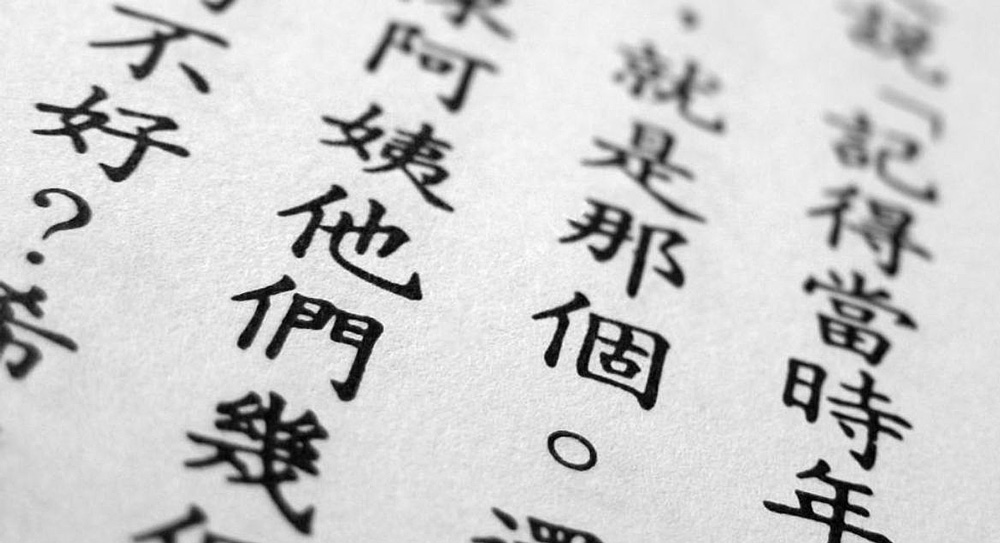 說「記得當時年
就是那個。還
阿姨他們幾
不好？